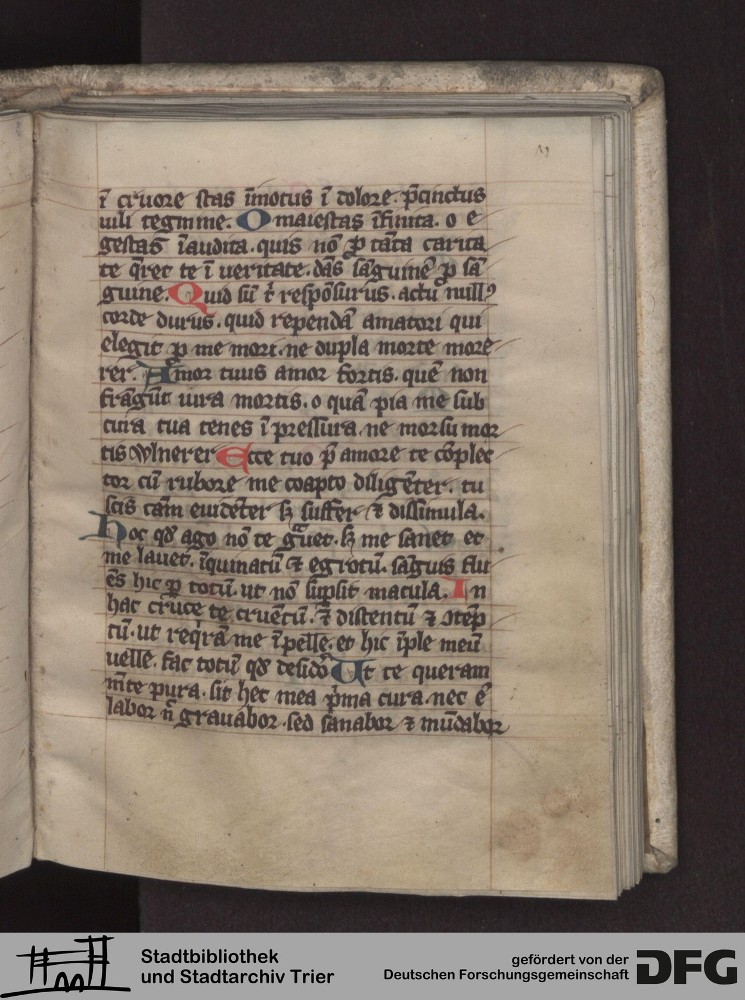 ī cruore stas īmotus ī dolore. p̄cinctus
uili tegmine. O maiestas īfinita. o e
gestas īaudita. quis nō ꝓ tāta carita
te q̄rēt te ī ueritate. dās sāguinē ꝓ sā
guine. Quid sū t̄ respōsurus. actu nullꝰ
corde durus. quid rependā amatori qui
elegit ꝓ me mori. ne dupla morte more
rer. Amor tuus amor fortis. quē non
frāgūt iura mortis. o quā pia me sub
cura tua tenes ī pressura. ne morsu mor
tis wlnerer Ecce tuo p̄ amore te cōplec
tor cū rubore me coapto diligēter. tu
scis cām euidēter sꝫ suffer ⁊ dissimula.
Hoc qd̄ ago nō te g̈uet. sꝫ me sanet et
me lauet. īquinatū ⁊ egrotū. sāguis flu
ēs hic ꝑ totū. ut nō supsit macula. In
hac cruce te cruētū. ⁊ distentū ⁊ ꝯtēp
tū. ut reqͥrā me īpelle. et hic īple meū
uelle. fac totū qd̄ desidō Ut te queram
mēte pura. sit hec mea pͥma cura. nec ē
labor n̄ grauabor. sed sanabor ⁊ mūdabor
Stadtbibliothek
und Stadtarchiv Trier
gefördert von der
Deutschen Forschungsgemeinschaft
DFG